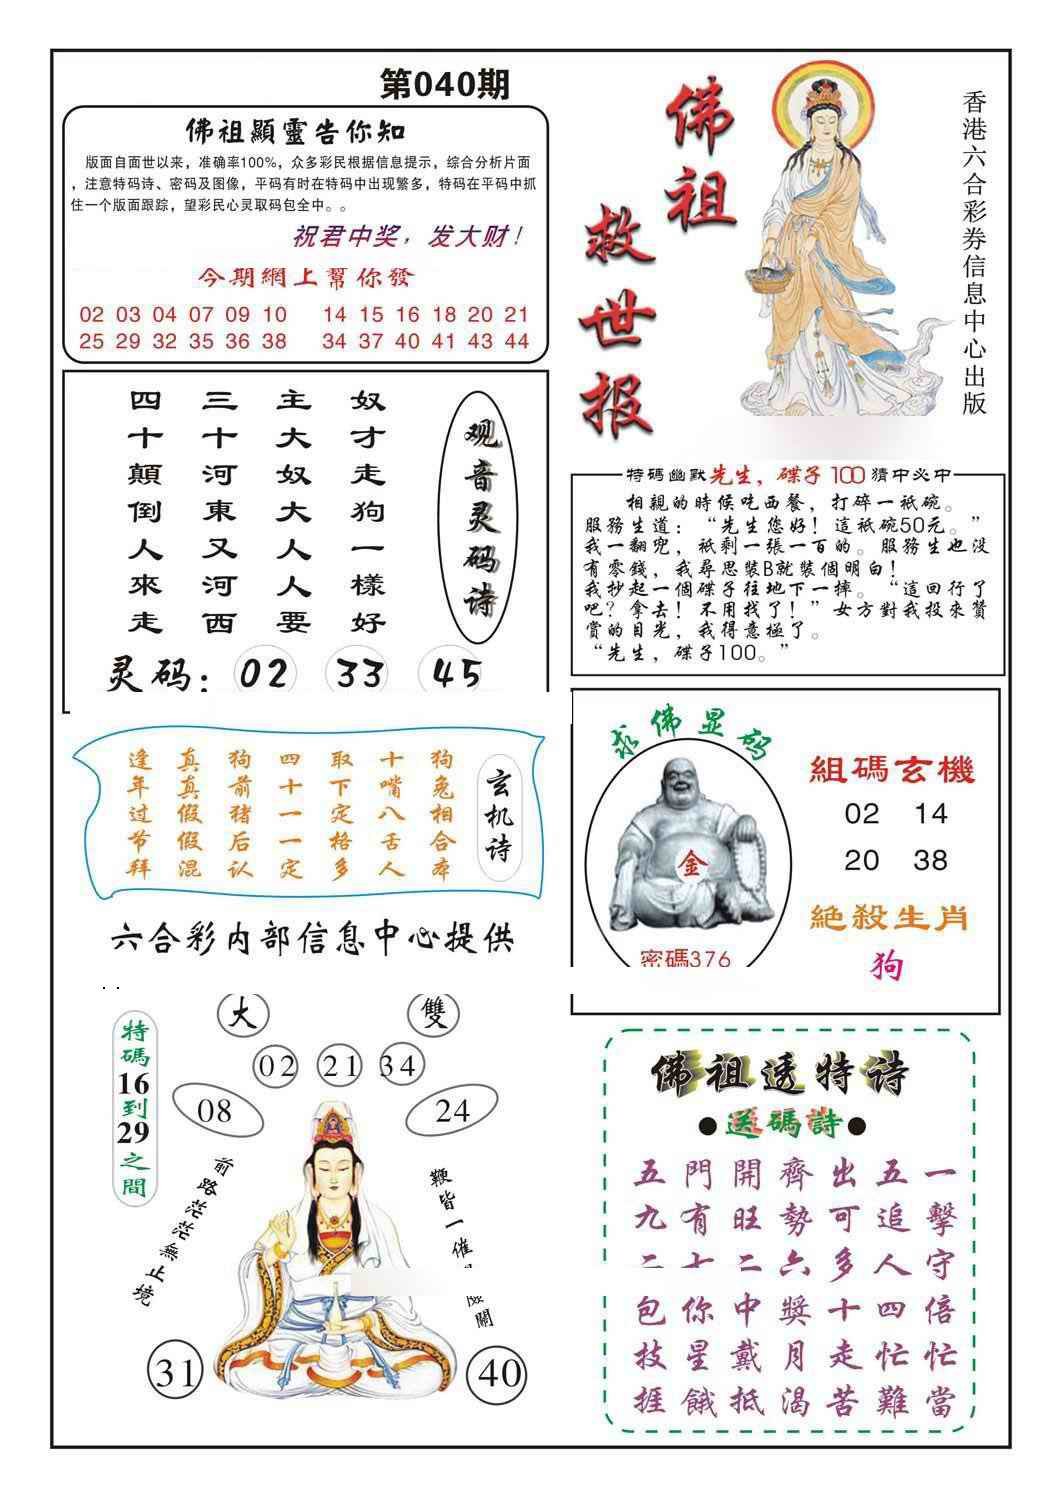 第040期
佛祖顯靈告你知
版面自面世以来，准确率100%，众多彩民根据信息提示，综合分析片面
，注意特码诗、密码及图像，平码有时在特码中出现繁多，特码在平码中抓
住一个版面跟踪，望彩民心灵取码包全中。。
祝君中奖，发大财！
今期網上幫你發
02 03 04 07 09 10 14 15 16 18 20 21
25 29 32 35 36 38 34 37 40 41 43 44
佛祖
救世报
香港六合彩券信息中心出版
观音灵码诗
奴才走狗一樣好
主大奴大人人要
三十河東又河西
四十顛倒人來走
灵码：02 33 45
特碼幽默先生，碟子100猜中必中
相親的時候吃西餐，打碎一祇碗。
服務生道：“先生您好！這祇碗50元。”
我一翻兜，祇剩一張一百的。服務生也没
有零錢，我尋思裝B就裝個明白！
我抄起一個碟子往地下一摔。“這回行了
吧？拿去！不用找了！”女方對我投來贊
賞的目光，我得意極了。
“先生，碟子100。”
玄机诗
狗兔相合本
十嘴八舌人
取下定格多
四十一一定
狗前猪后认
真真假假混
逢年过节拜
六合彩内部信息中心提供
求佛显码
金
密碼376
組碼玄機
02 14
20 38
絕殺生肖
狗
特碼16到29之間
大 雙
02 21 34
08 24
前路茫茫無止境
鞭皆一催
關
31 40
佛祖透特诗
●送碼詩●
五門開齊出五一
九有旺勢可追擊
二十二六多人守
包你中獎十四倍
技星戴月走忙忙
捱餓抵渴苦難當